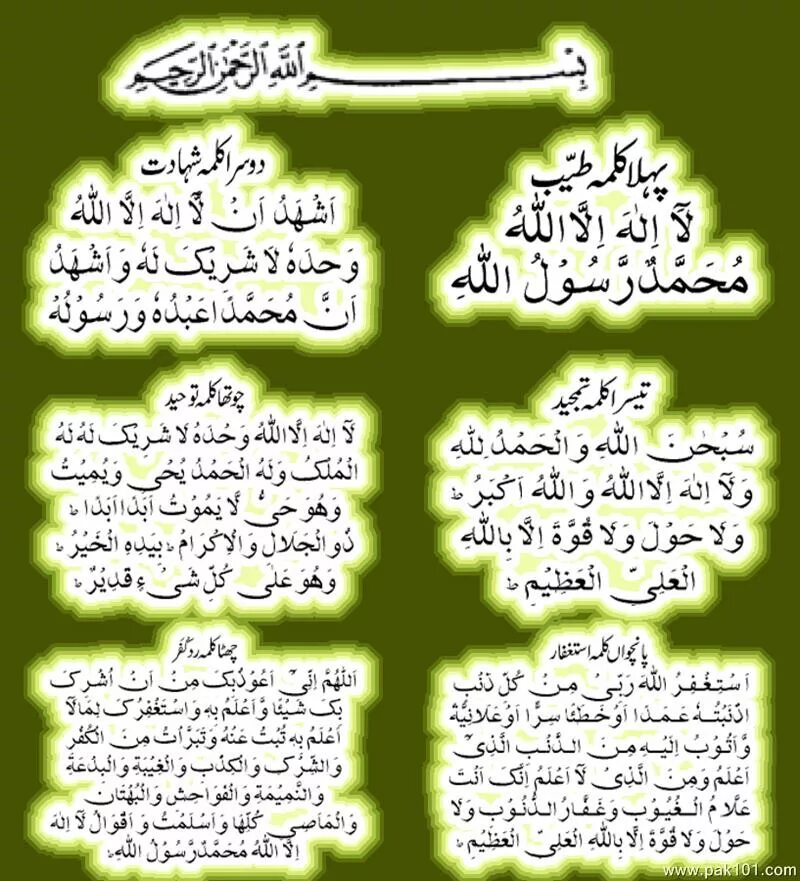 بِسْمِ اللهِ الرَّحْمٰنِ الرَّحِيْمِ
پہلا کلمہ طیّب
لَآ اِلٰهَ اِلَّا اللهُ
مُحَمَّدٌ رَّسُوْلُ اللهِ
دوسرا کلمہ شہادت
اَشْهَدُ اَنْ لَّآ اِلٰهَ اِلَّا اللهُ
وَحْدَهٗ لَا شَرِيْكَ لَهٗ وَاَشْهَدُ
اَنَّ مُحَمَّدًا عَبْدُهٗ وَرَسُوْلُهٗ
تیسرا کلمہ تمجید
سُبْحٰنَ اللهِ وَالْحَمْدُ لِلّٰهِ
وَلَآ اِلٰهَ اِلَّا اللهُ وَاللهُ اَكْبَرُ ؕ
وَلَا حَوْلَ وَلَا قُوَّةَ اِلَّا بِاللهِ
الْعَلِىِّ الْعَظِيْمِ ؕ
چوتھا کلمہ توحید
لَآ اِلٰهَ اِلَّا اللهُ وَحْدَهٗ لَا شَرِيْكَ لَهٗ لَهُ
الْمُلْكُ وَلَهُ الْحَمْدُ يُحْىٖ وَيُمِيْتُ
وَهُوَ حَىٌّ لَّا يَمُوْتُ اَبَدًا اَبَدًا ؕ
ذُو الْجَلَالِ وَالْاِكْرَامِ ؕ بِيَدِهِ الْخَيْرُ ؕ
وَهُوَ عَلٰى كُلِّ شَىْءٍ قَدِيْرٌ ؕ
پانچواں کلمہ استغفار
اَسْتَغْفِرُ اللهَ رَبِّىْ مِنْ كُلِّ ذَنْۢبٍ
اَذْنَبْتُهٗ عَمَدًا اَوْ خَطَئًا سِرًّا اَوْ عَلَانِيَةً
وَّاَتُوْبُ اِلَيْهِ مِنَ الذَّنْۢبِ الَّذِىْٓ
اَعْلَمُ وَمِنَ الَّذِىْ لَآ اَعْلَمُ اِنَّكَ اَنْتَ
عَلَّامُ الْغُيُوْبِ وَغَفَّارُ الذُّنُوْبِ وَلَا
حَوْلَ وَلَا قُوَّةَ اِلَّا بِاللهِ الْعَلِىِّ الْعَظِيْمِ ؕ
چھٹا کلمہ رد کفر
اَللّٰهُمَّ اِنِّىْٓ اَعُوْذُ بِكَ مِنْ اَنْ اُشْرِكَ
بِكَ شَيْئًا وَّاَعْلَمُ بِهٖ وَاسْتَغْفِرُكَ بِمَا لَآ
اَعْلَمُ بِهٖ تُبْتُ عَنْهُ وَتَبَرَّأْتُ مِنَ الْكُفْرِ
وَالشِّرْكِ وَالْكِذْبِ وَالْغِيْبَةِ وَالْبِدْعَةِ
وَالنَّمِيْمَةِ وَالْفَوَاحِشِ وَالْبُهْتَانِ
وَالْمَعَاصِىْ كُلِّهَا وَاَسْلَمْتُ وَاَقُوْلُ لَآ اِلٰهَ
اِلَّا اللهُ مُحَمَّدٌ رَّسُوْلُ اللهِ ؕ
www.pak101.com